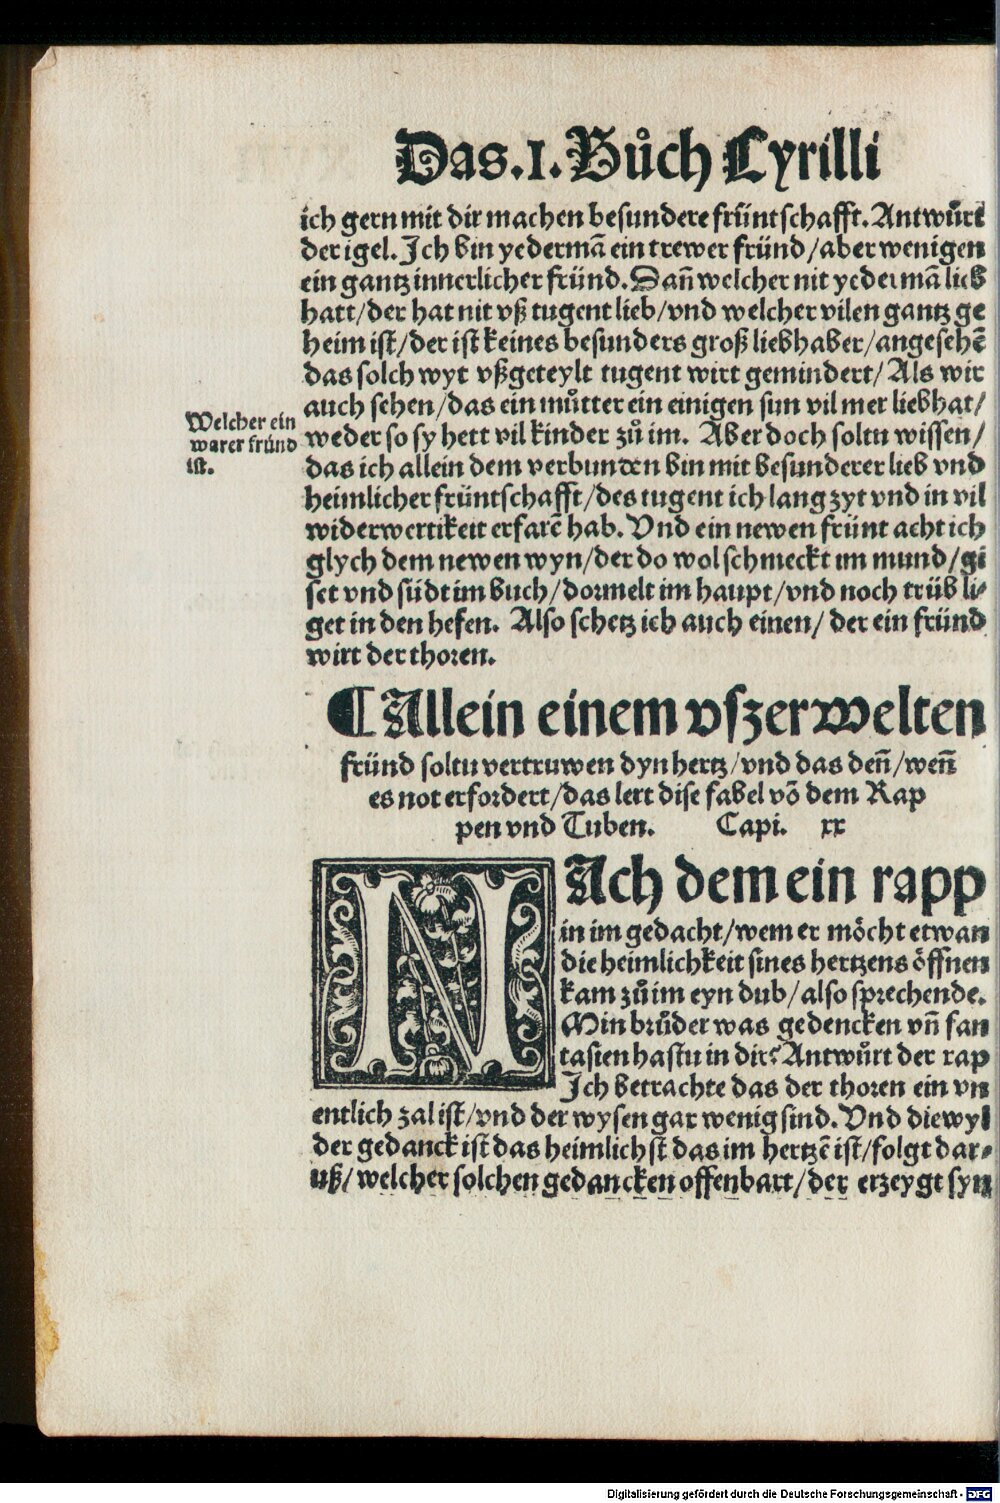 Das.I.Bůch Cyrilli
ich gern mit dir machen besundere früntschafft. Antwůrt
der igel. Ich bin yedermā ein trewer fründ/aber wenigen
ein gantz innerlicher fründ. Dañ welcher nit yedermā lieb
hatt/der hat nit vß tugent lieb/vnd welcher vilen gantz ge
heim ist/der ist keines besunders groß liebhaber/angesehē
das solch wyt vßgeteylt tugent wirt gemindert/Als wir
auch sehen/das ein můtter ein einigen sun vil mer lieb hat/
Welcher ein
warer fründ
ist.
weder so sy hett vil kinder zů im. Aber doch soltu wissen/
das ich allein dem verbunden bin mit besunderer lieb vnd
heimlicher früntschafft/des tugent ich lang zyt vnd in vil
widerwertikeit erfarē hab. Vnd ein newen frünt acht ich
glych dem newen wyn/der do wol schmeckt im mund/gi
set vnd südt im buch/dormelt im haupt/vnd noch trüb li⸗
get in den hefen. Also schetz ich auch einen/der ein fründ
wirt der thoren.
¶Allein einem vszerwelten
fründ soltu vertruwen dyn hertz/vnd das deñ/weñ
es not erfordert/das lert dise fabel vō dem Rap
pen vnd Tuben. Capi. xx
NAch dem ein rapp
in im gedacht/wem er möcht etwan
die heimlichkeit sines hertzens öffnen
kam zů im eyn dub/also sprechende.
Min brůder was gedencken vñ fan
tasien hastu in dir? Antwůrt der rap
Ich betrachte das der thoren ein vn
entlich zal ist/vnd der wysen gar wenig sind. Vnd diewyl
der gedanck ist das heimlichst das im hertzē ist/folgt dar⸗
uß/welcher solchen gedancken offenbart/der erzeygt syn
Digitalisierung gefördert durch die Deutsche Forschungsgemeinschaft - DFG